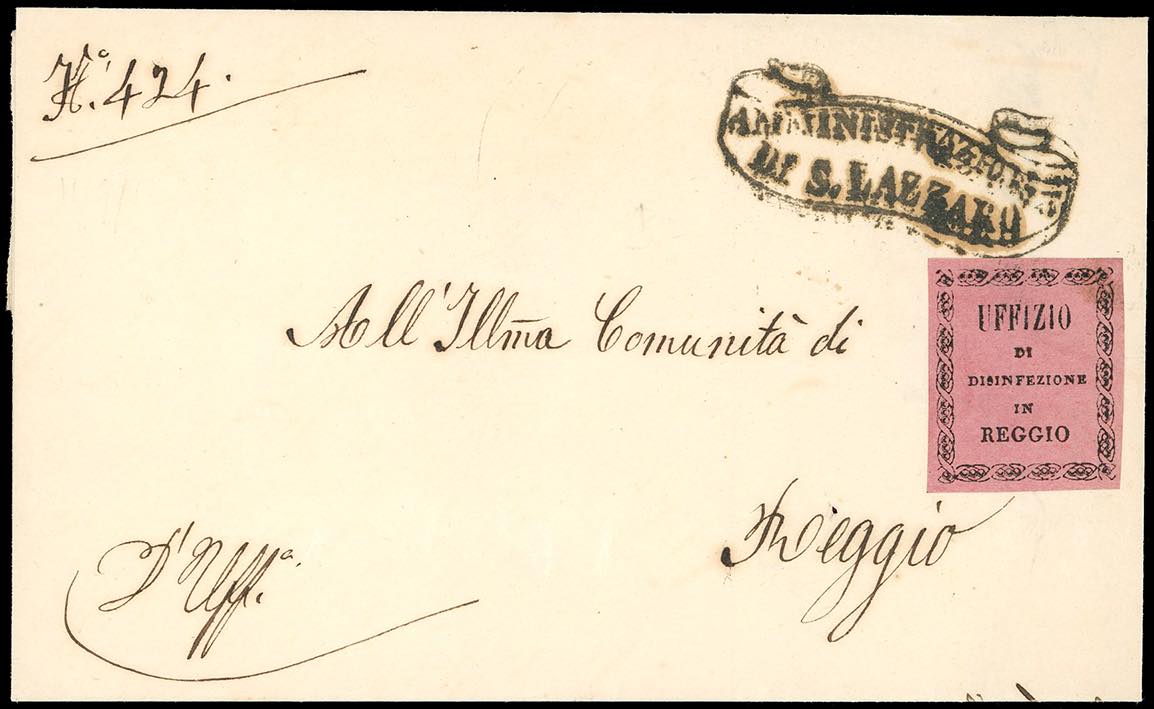 N.° 424.
AMMINISTRAZIONE
DI S. LAZZARO
All' Illm̃a Comunità di
Reggio
D' Uff.°
UFFIZIO
DI
DISINFEZIONE
IN
REGGIO